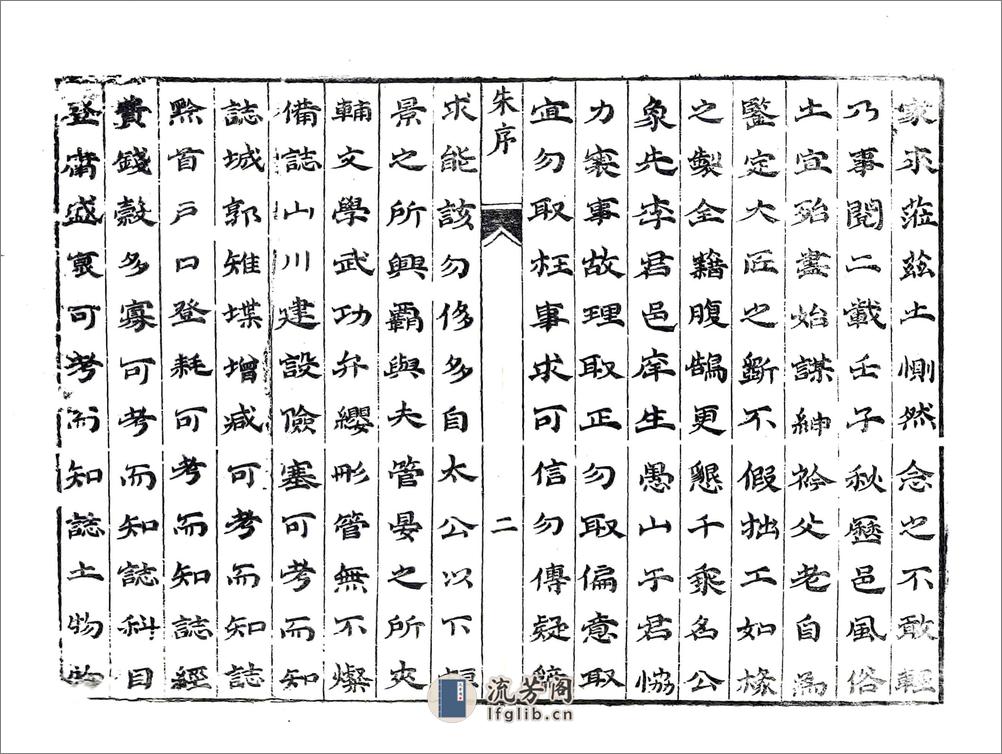 家求蒞茲土惻然念之不敢輕
乃事閱二載壬子秋歷邑風俗
土宜殆盡始謀紳衿父老自為
鑒定大匠之斲不假拙工如椽
之製全藉腹鵠更懇千乘名公
象先李君邑庠生愚山于君恊
力襄事故理取正勿取偏意取
宜勿取枉事求可信勿傳疑
朱序
二
求能該勿侈多自太公以下
景之所興霸與夫管晏之所夾
輔文學武功弁纓彤管無不燦
備誌山川建設險塞可考而知
誌城郭雉堞增減可考而知誌
黔首戶口登耗可考而知誌經
費錢穀多寡可考而知誌科目
登庸盛衰可考而知誌土物
流芳阁
lfglib.cn